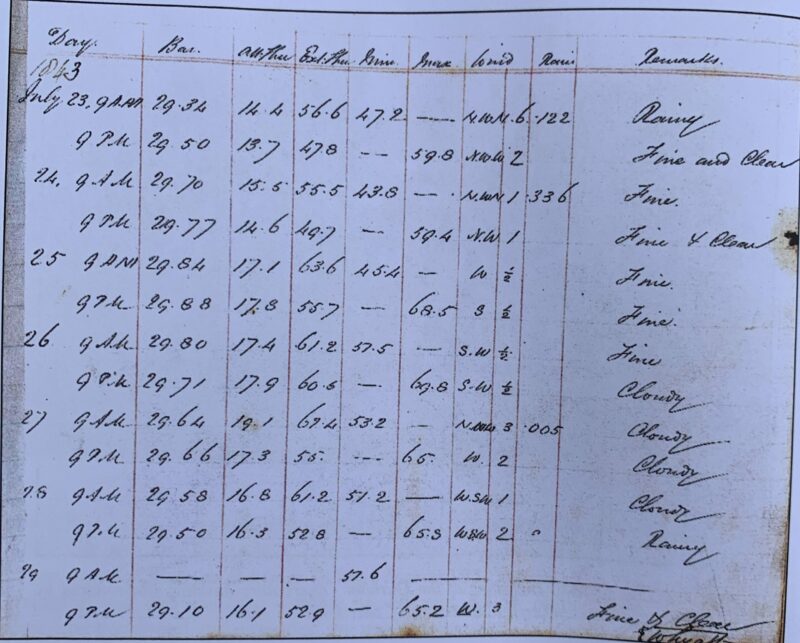 Day. Bar. Att. Ther Ext. Ther Min. Max Wind Rain Remarks.
1843
July 23, 9 A.M 29.34 14.4 56.6 47.2 — N.W. 6 .122 Rainy
9 P.M 29.50 13.7 47.8 -- 59.8 N.W. 2 Fine and Clear
24, 9 A.M 29.70 15.5 55.5 43.8 — N.W. 1 .336 Fine.
9 P.M 29.77 14.6 49.7 — 59.4 N.W. 1 Fine & Clear
25 9 A.M 29.84 17.1 63.6 45.4 — W ½ Fine.
9 P.M 29.88 17.8 55.7 — 68.5 S ½ Fine.
26 9 A.M 29.80 17.4 61.2 57.5 — S.W ½ Fine
9 P.M 29.71 17.9 60.5 — 69.8 S.W ½ Cloudy
27 9 A.M 29.64 19.1 62.4 53.2 — 3 .005 Cloudy
9 P.M 29.66 17.3 55. -- 65. W. 2 Cloudy
28 9 A.M 29.58 16.8 61.2 51.2 — W.SW 1 Cloudy
9 P.M 29.50 16.3 52.8 — 65.3 W.SW 2 " Rainy
29 9 A.M — — — 57.6 —
9 P.M 29.10 16.1 52.9 — 65.2 W. 3 Fine & Clear